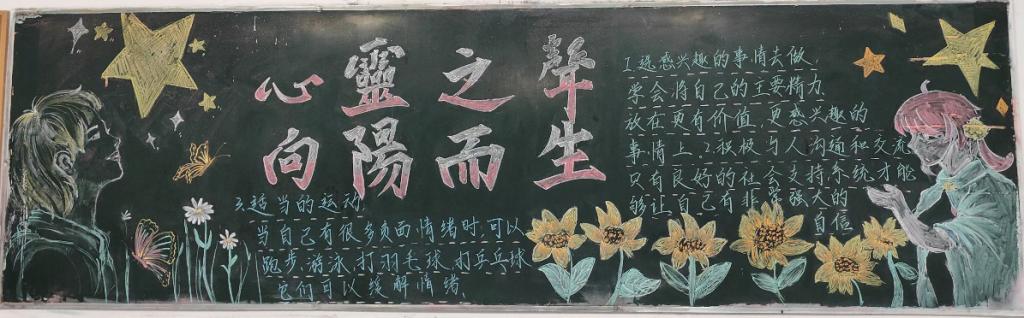 心靈之聲
向陽而生
1.选感兴趣的事情去做.
学会将自己的主要精力
放在更有价值、更感兴趣的
事情上、2.积极与人沟通和交流
只有良好的社会支持系统才能
够让自己有非常强大的
自信
3.适当的运动
当自己有很多负面情绪时,可以
跑步、游泳、打羽毛球、打乒乓球
它们可以缓解情绪、